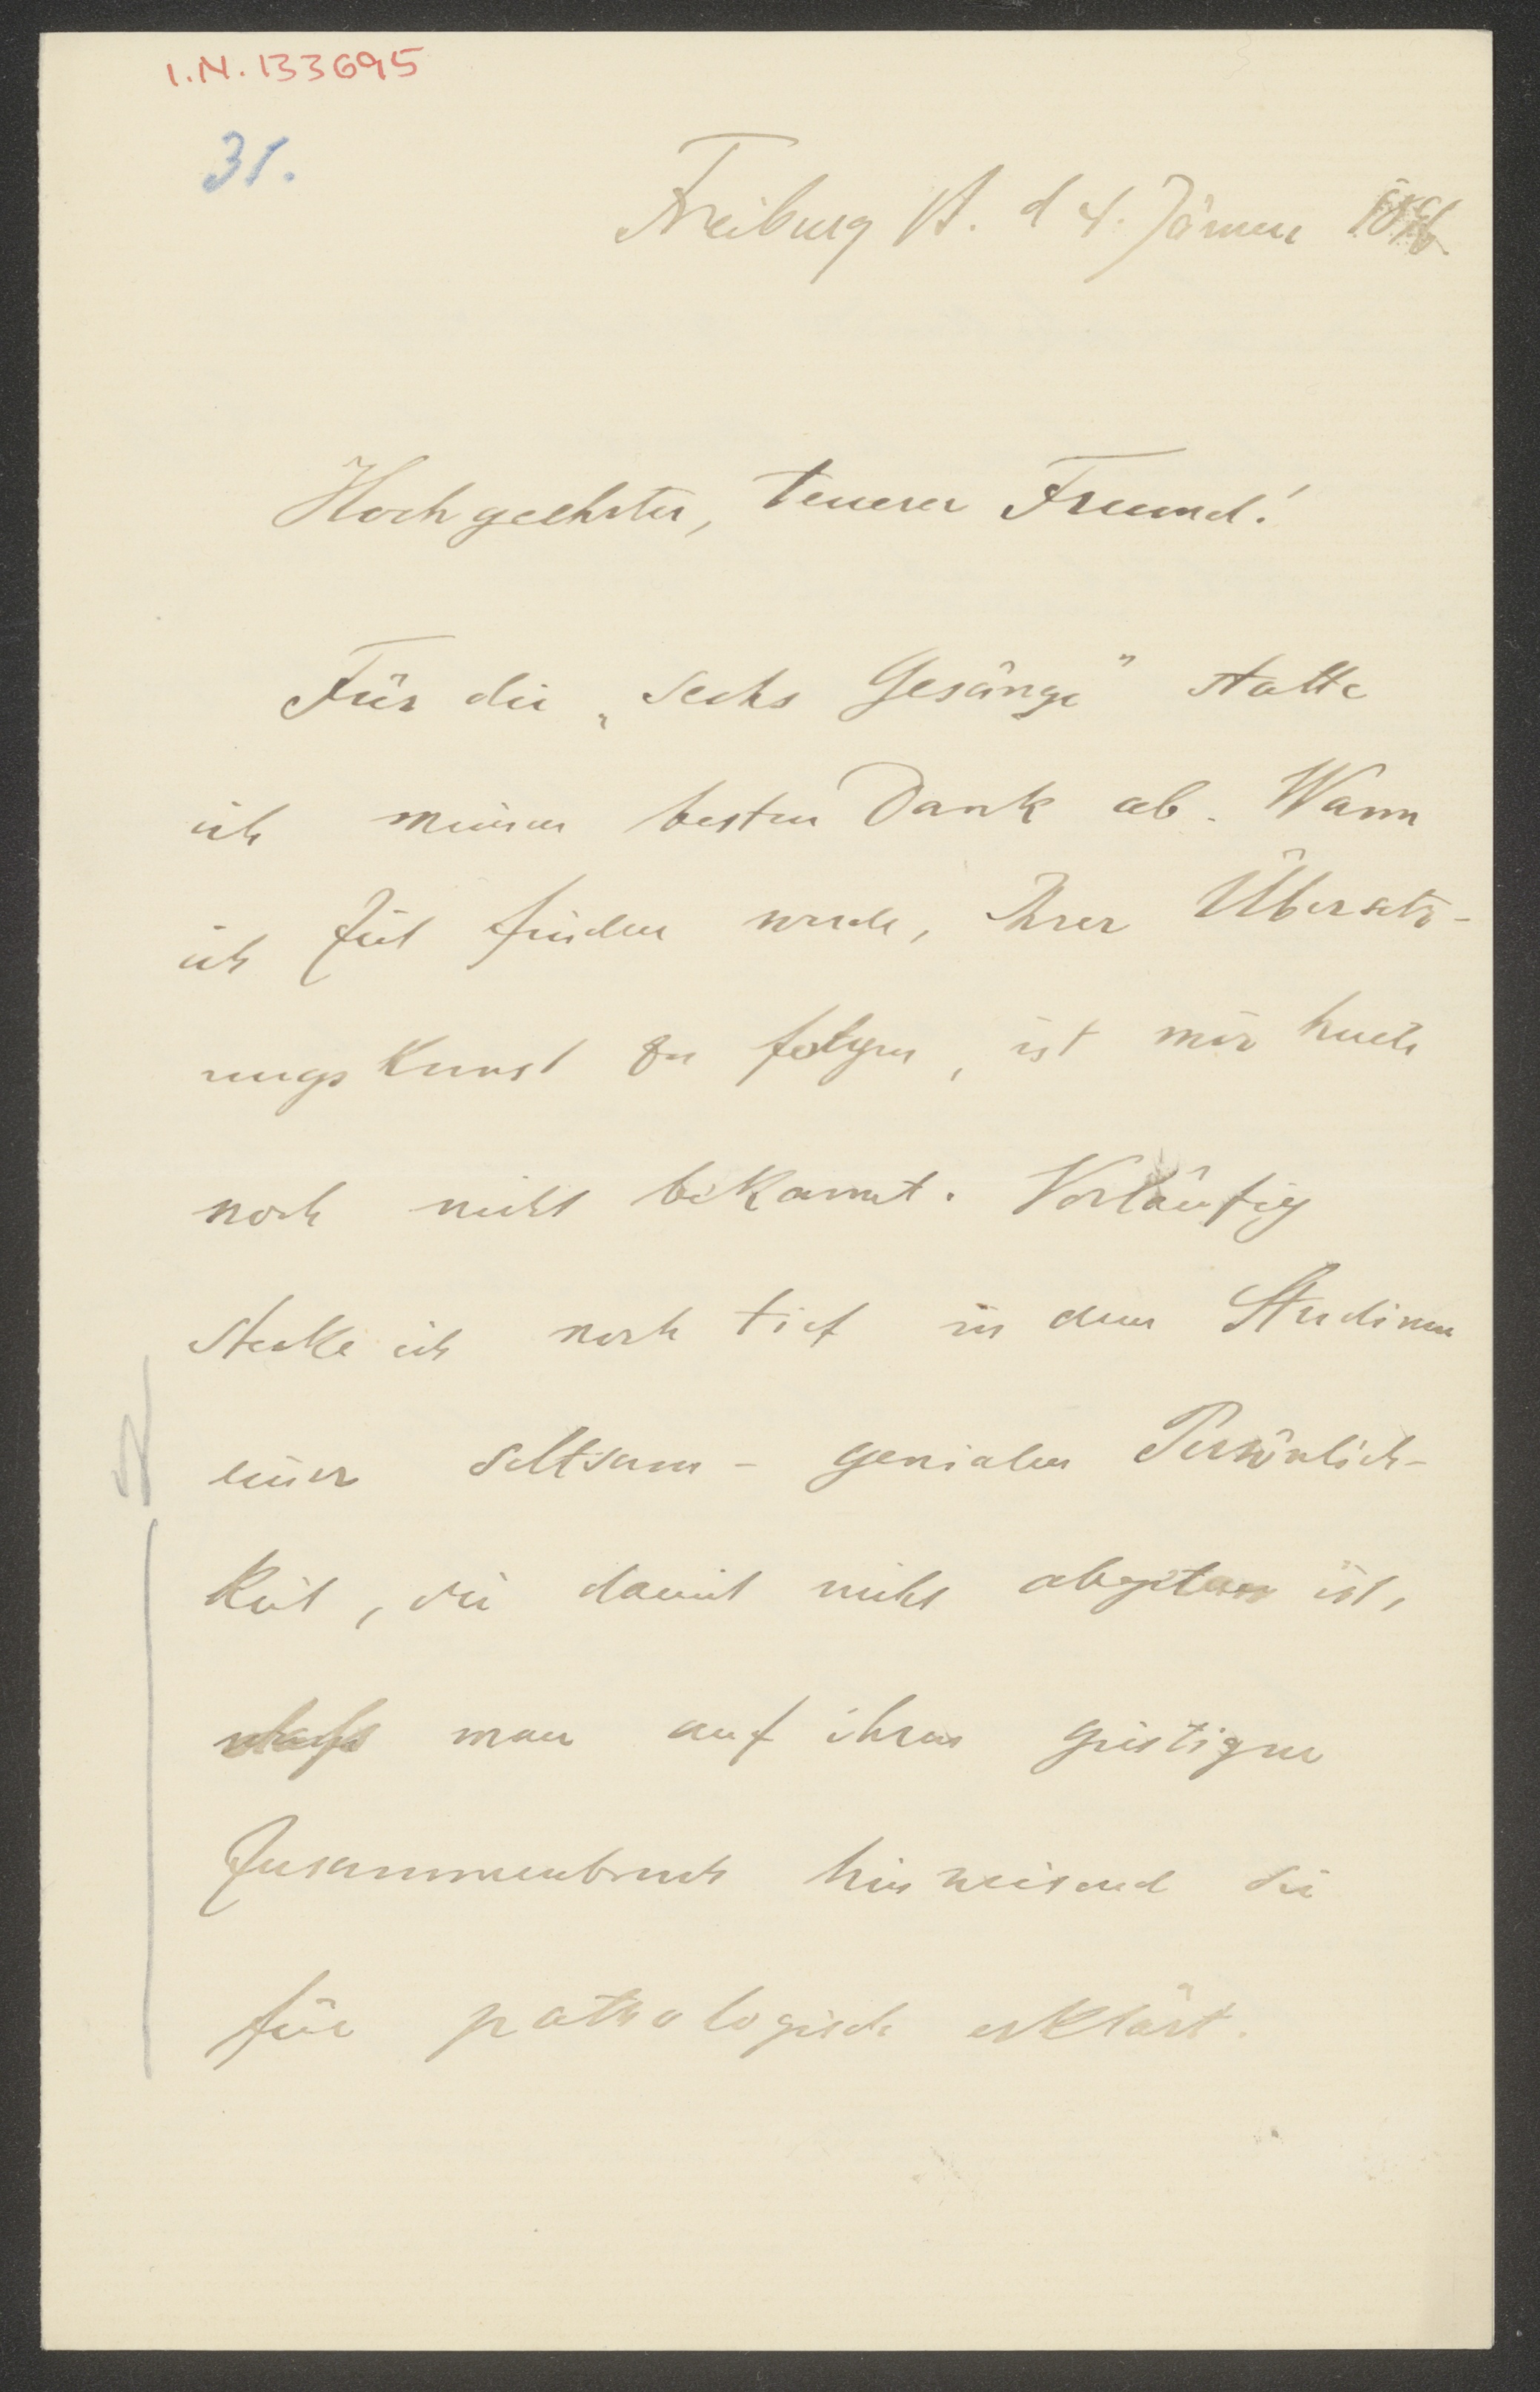 I.N. 133695
31.
Freiburg /S. d 4. Jänner
Hochgeehrter, teurer Freund!
Für die „sechs Gesänge" statte
ich meinen besten Dank ab. Wann
ich Zeit finden werde, Ihrer Übersetz-
ungskunst zu folgen, ist mir heute
noch nicht bekannt. Vorläufig
stecke ich noch tief in dem Studium
einer seltsam-genialen Persönlich-
keit, die damit nicht abgetan ist,
dass man auf ihren geistigen
Zusammenbruch hinweisend sie
für pathologisch erklärt.